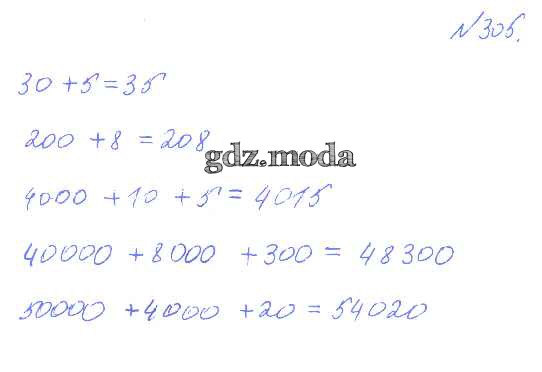 №305.
30 + 5 = 35
200 + 8 = 208
gdz.moda
4000 + 10 + 5 = 4015
40000 + 8000 + 300 = 48300
50000 + 4000 + 20 = 54020